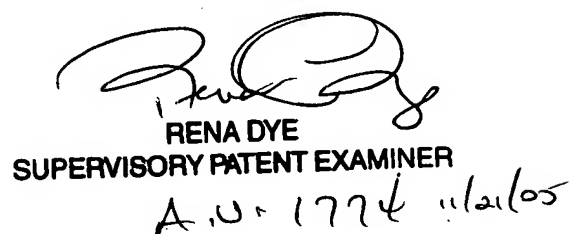 RENA DYE
SUPERVISORY PATENT EXAMINER
A.U. 1774 11/21/05